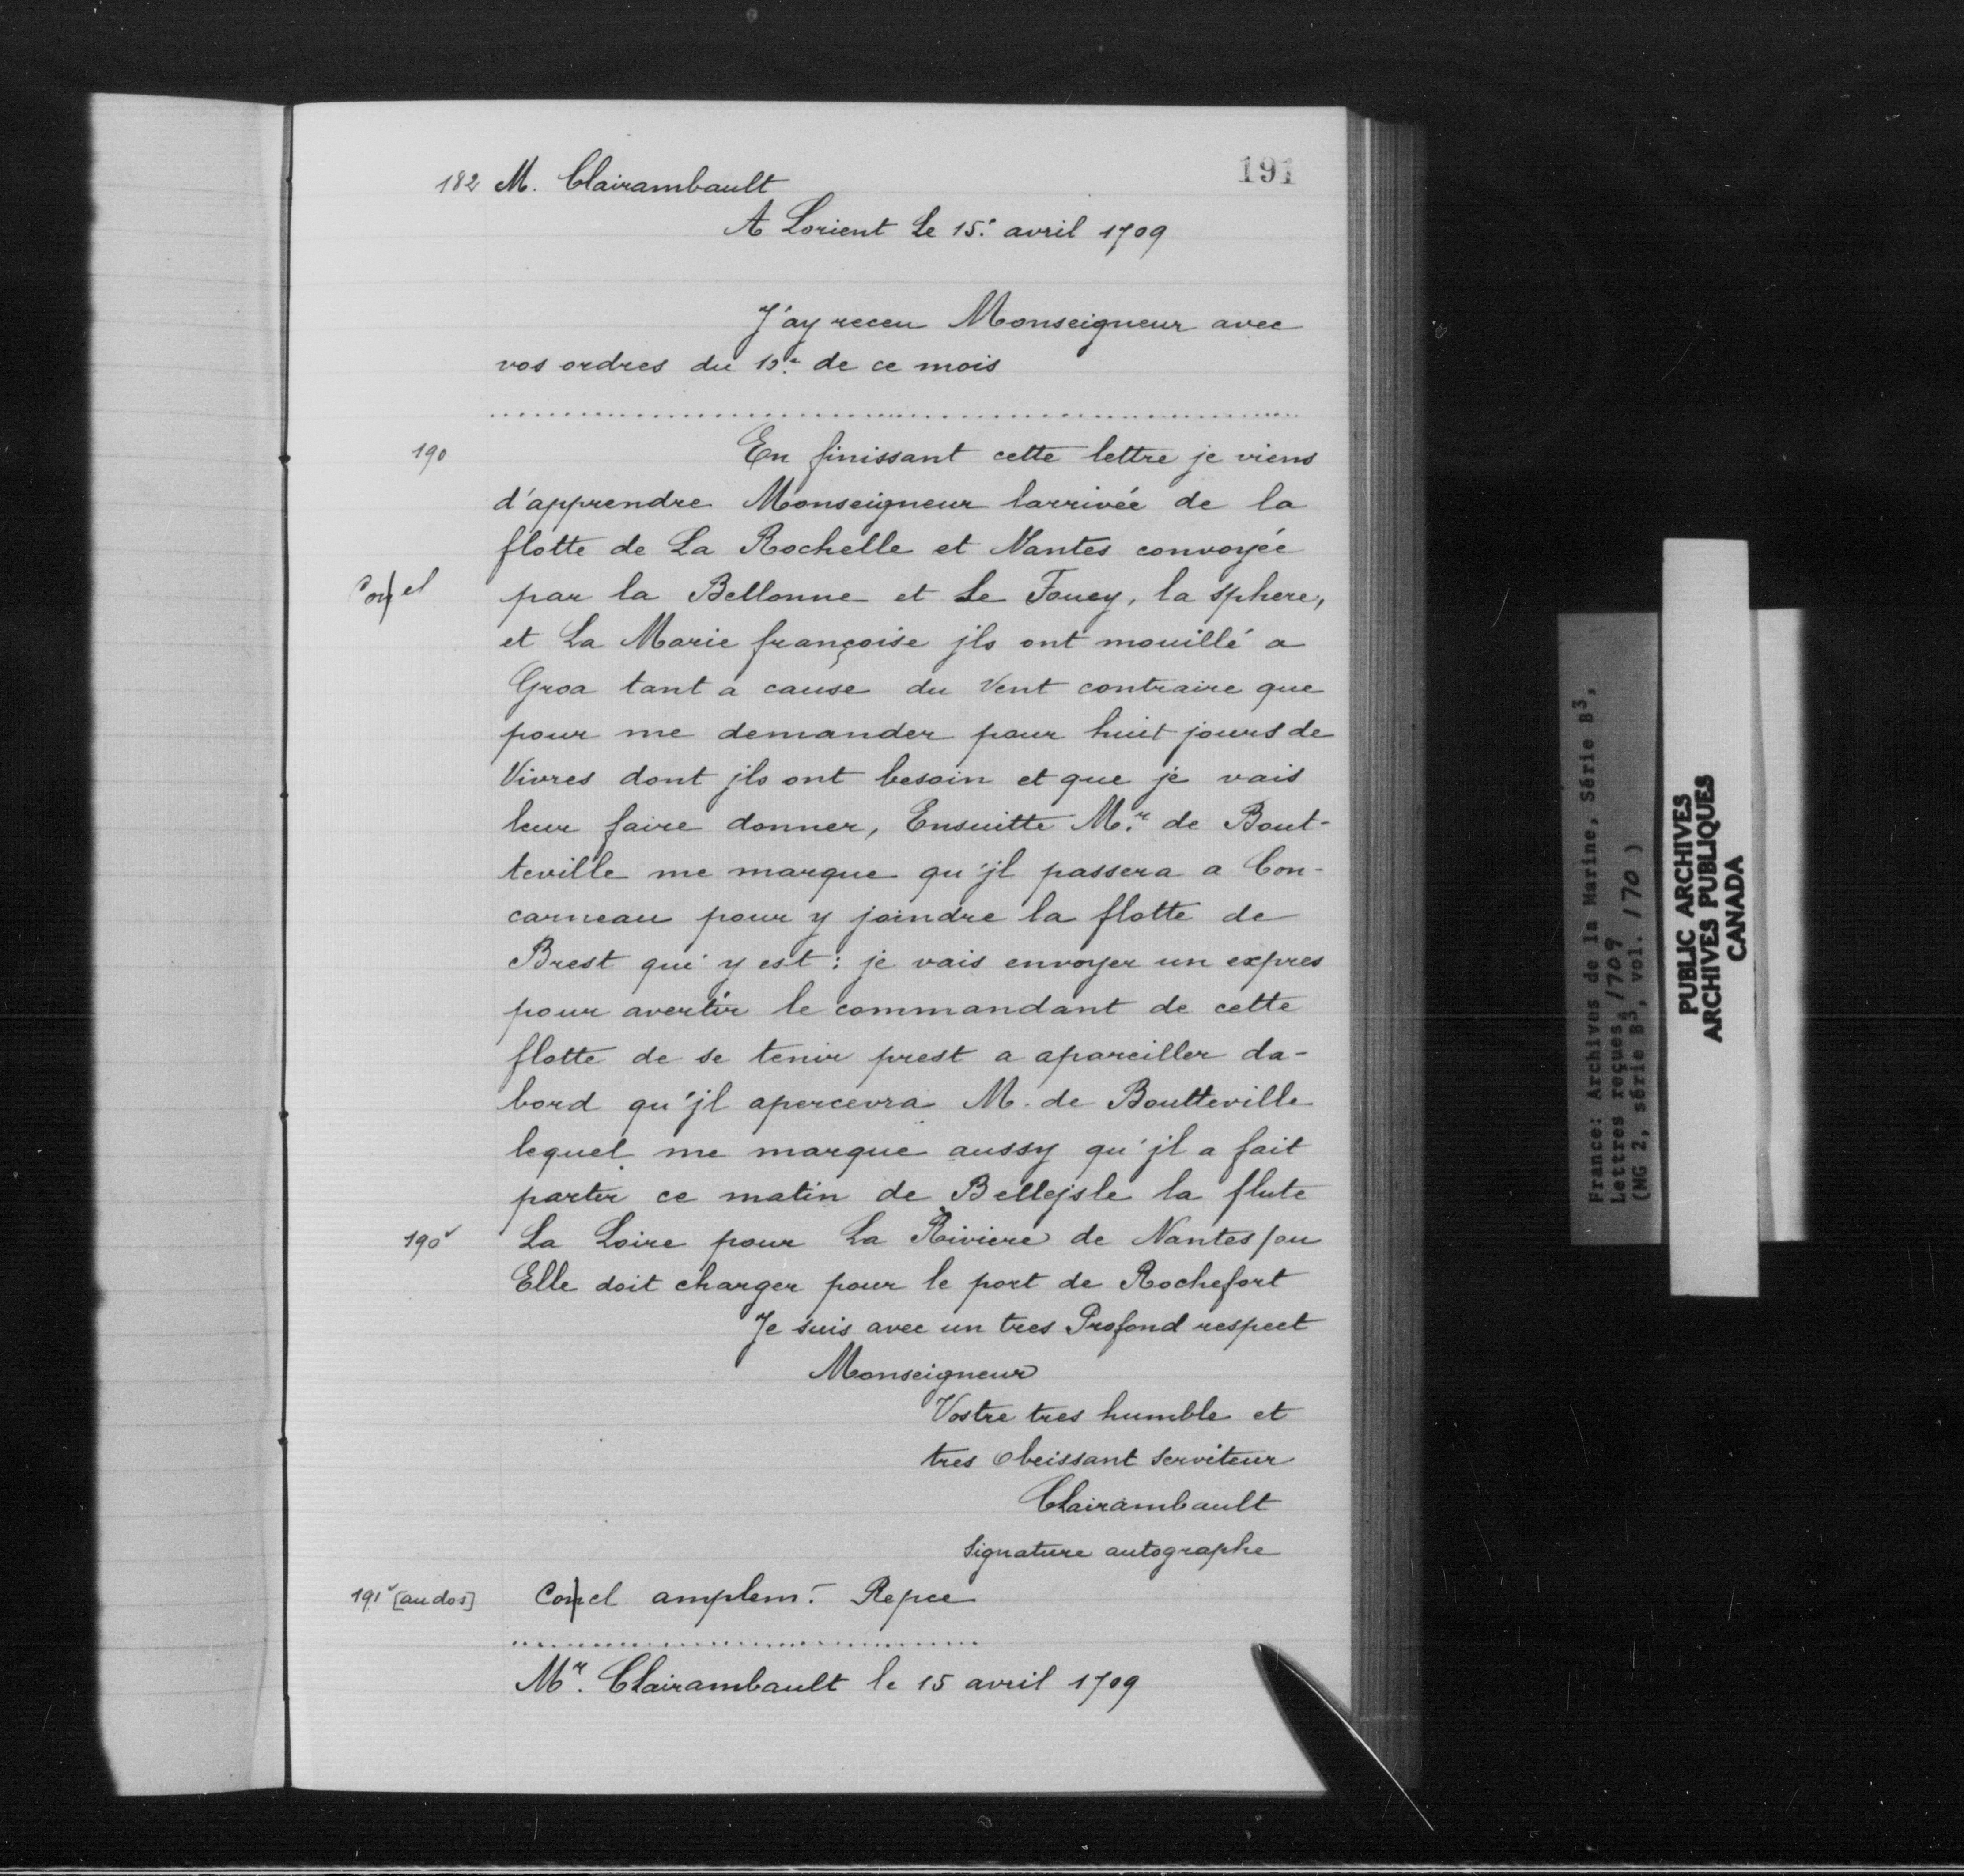 191
182 M. Clairambault
A Lorient Le 15.e avril 1709
J'ay receu Monseigneur avec
vos ordres du de ce mois
190 En finissant cette lettre je viens
d'apprendre Monseigneur larrivée de la
flotte de La Rochelle et Nantes convoyée
par la Bellonne et Le Fouey, la sphere,
et La Marie françoise jls ont mouillé a
Groa tant a cause du Vent contraire que
pour me demander pour huit jours de
Vivres dont jls ont besoin et que je vais
leur faire donner, Ensuitte M.r de Bout-
teville me marque qu'jl passera a Con-
carneau pour y joindre la flotte de
Brest qui y est : je vais envoyer un expres
pour avertir le commandant de cette
flotte de se tenir prest a apareiller da-
bord qu'jl apercevra M. de Boutteville
lequel me marque aussy qu'jl a fait
partir ce matin de Bellejsle la flute
190v La Loire pour La Riviere de Nantes ou
Elle doit charger pour le port de Rochefort
Je suis avec un tres Profond respect
Monseigneur
Vostre tres humble et
tres obeissant serviteur
Clairambault
signature autographe
191v [au dos] amplemt. Repce
Mr. Clairambault le 15 avril 1709
France: Archives de la Marine, Série B3,
Lettres reçues, 1709
(MG 2, série B3, vol. 170 )
PUBLIC ARCHIVES
ARCHIVES PUBLIQUES
CANADA